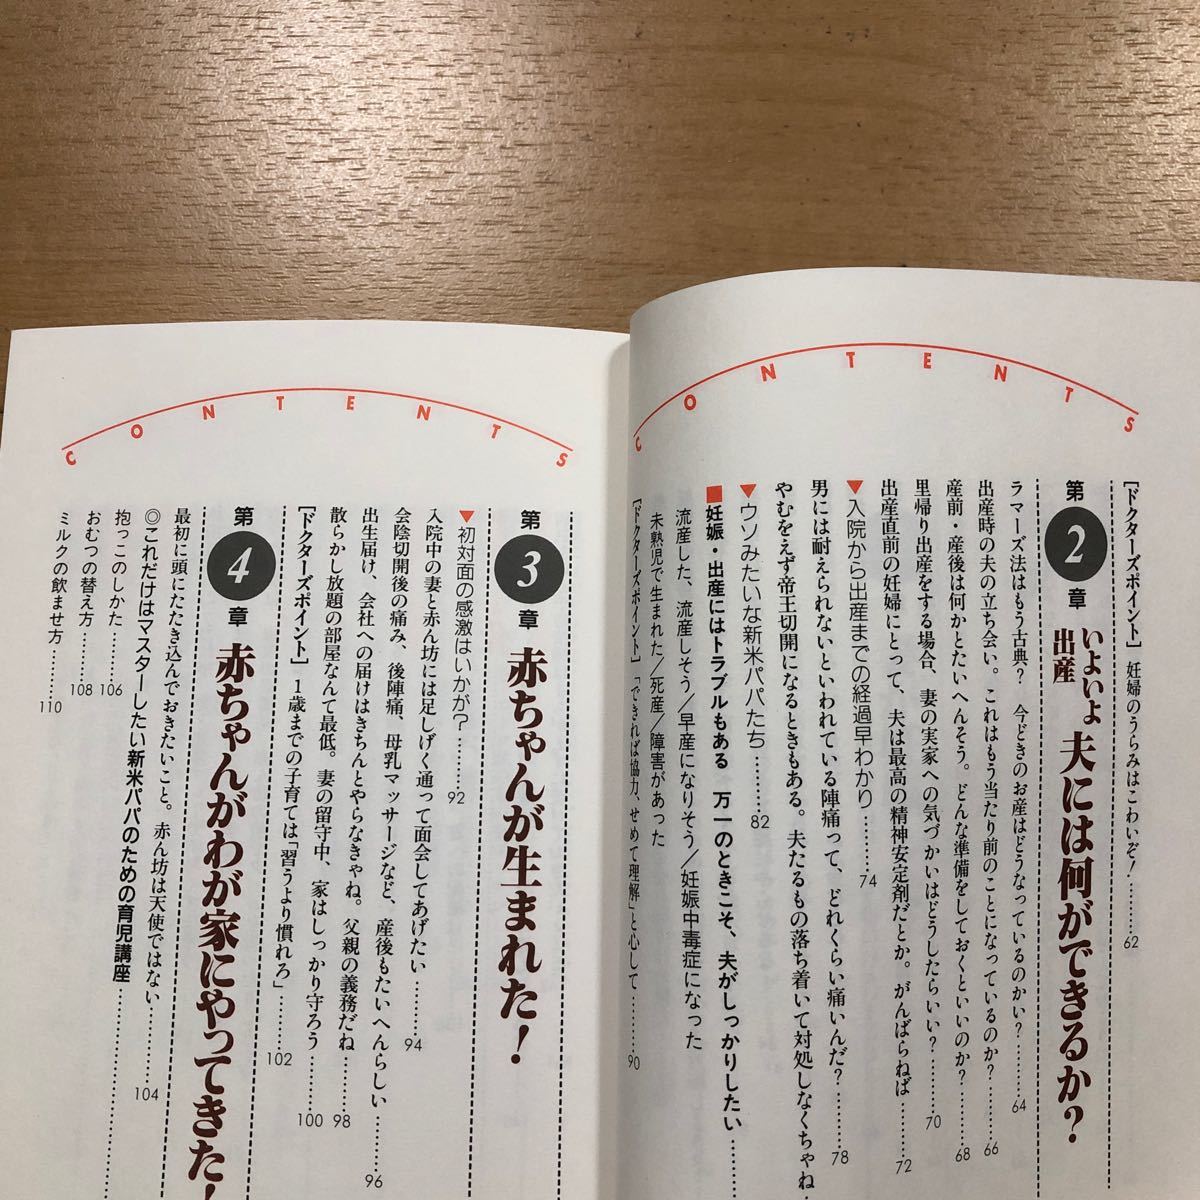 CONTENTS
[ドクターズポイント] 妊婦のうらみはこわいぞ!………62
第2章 いよいよ出産 夫には何ができるか?
ラマーズ法はもう古典? 今どきのお産はどうなっているのかい?……64
出産時の夫の立ち会い。これはもう当たり前のことになっているのか?……66
産前・産後は何かとたいへんそう。どんな準備をしておくといいのか?……68
里帰り出産をする場合、妻の実家への気づかいはどうしたらいい?………70
出産直前の妊婦にとって、夫は最高の精神安定剤だとか。がんばらねば……72
▼入院から出産までの経過早わかり………74
男には耐えられないといわれている陣痛って、どれくらい痛いんだ?………78
やむをえず帝王切開になるときもある。夫たるもの落ち着いて対処しなくちゃね
▼ウソみたいな新米パパたち………82
■妊娠・出産にはトラブルもある 万一のときこそ、夫がしっかりしたい……
流産した、流産しそう/早産になりそう/妊娠中毒症になった
未熟児で生まれた/死産/障害があった
[ドクターズポイント]「できれば協力、せめて理解」と心して………90
CONTENTS
第3章 赤ちゃんが生まれた!
▼初対面の感激はいかが?………92
入院中の妻と赤ん坊には足しげく通って面会してあげたい………94
会陰切開後の痛み、後陣痛、母乳マッサージなど、産後もたいへんらしい………96
出生届け、会社への届けはきちんとやらなきゃね。父親の義務だね………98
散らかし放題の部屋なんて最低。妻の留守中、家はしっかり守ろう………100
[ドクターズポイント] 1歳までの子育ては「習うより慣れろ」………102
第4章 赤ちゃんがわが家にやってきた!
最初に頭にたたき込んでおきたいこと。赤ん坊は天使ではない………104
◎これだけはマスターしたい新米パパのための育児講座………
抱っこのしかた………106
おむつの替え方………108
ミルクの飲ませ方………110